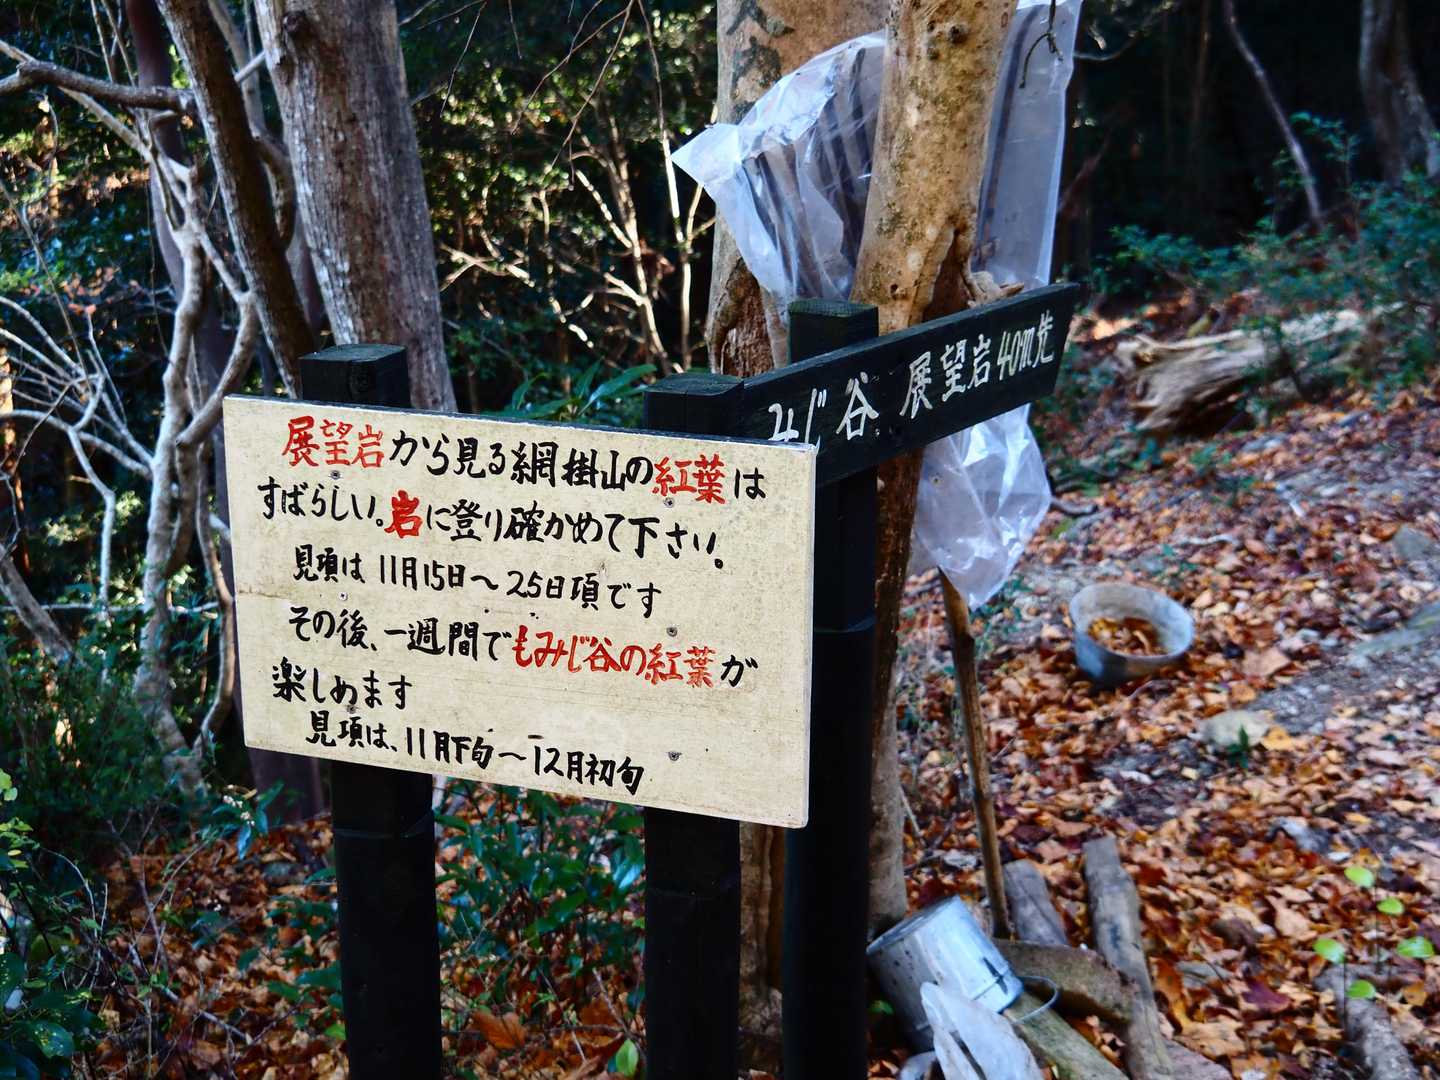 展望岩から見る網掛山の紅葉は
すばらしい。岩に登り確かめて下さい。
見項は 11月15日～25日項です
その後、一週間でもみじ谷の紅葉が
楽しめます
見項は、11月下旬～12月初旬
みじ谷 展望岩40m先